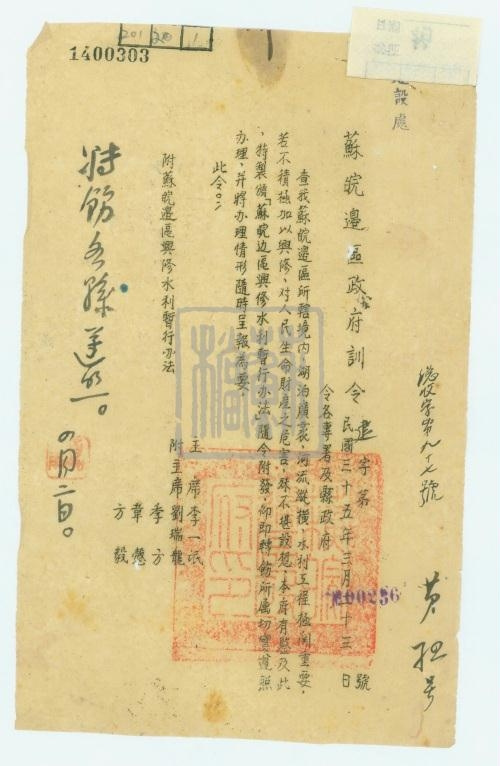 201 20 1
1400303
設處
蘇皖邊區政府訓令
建字第
號
民國三十五年三月二十三日
00256
總收字第九十七號
令各專署及縣政府
查我蘇皖邊區所轄境内湖泊廣袤,河流縱横,水利工程極関重要,
若不積極加以興修,对人民生命財產之危害,殊不堪設想,本府有鑒及此
,特製頒「蘇皖边區興修水利暫行办法」隨令附發,仰即轉飭所屬切實遵照
办理,并將办理情形隨時呈報為要。
此令。
附蘇皖邊區興修水利暫行办法
主席 李一氓
附主席 劉瑞龍
季方
韋慤
方毅
轉飭各縣遵照。
四月二日。